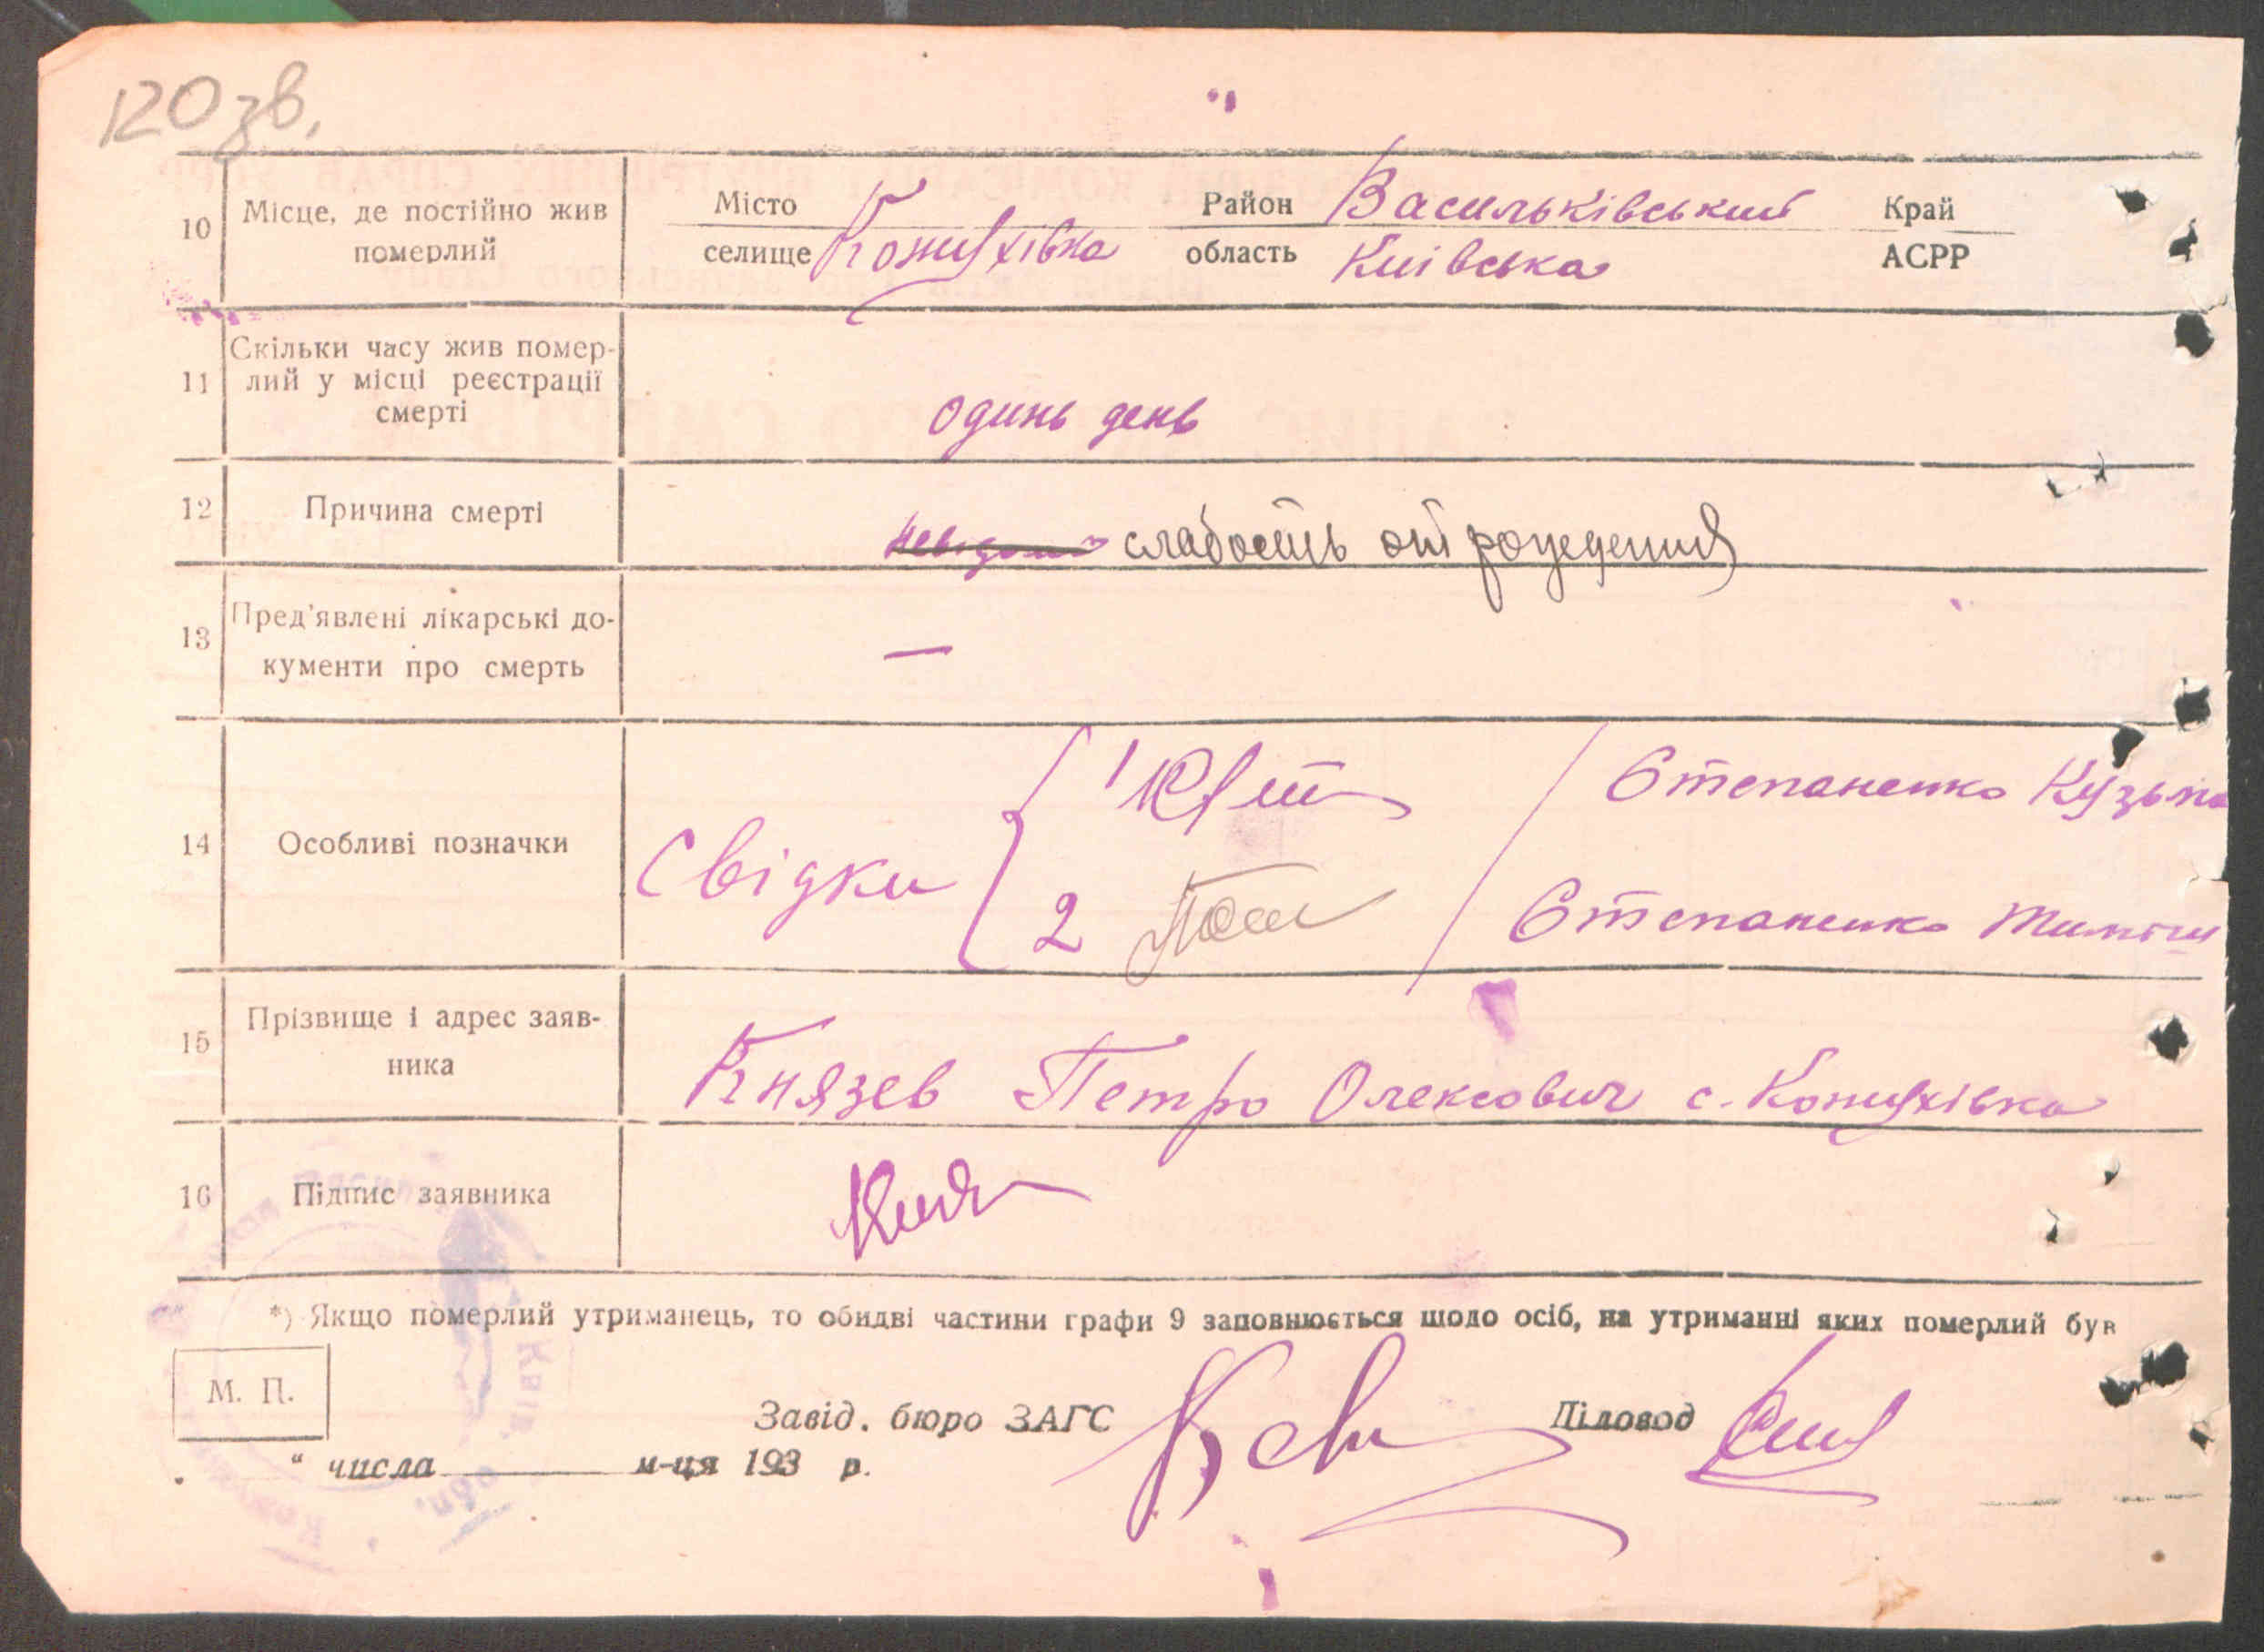 120 зв.
10 Місце, де постійно жив померлий
Місто селище Кожухівка Район Васильківський Край
область Київська АСРР
11 Скільки часу жив помер-
лий у місці реєстрації
смерті
одинь день
12 Причина смерті невідомо слабость от рождения
13 Пред'явлені лікарські до-
кументи про смерть
—
14 Особливі позначки Свідки
1 Степаненко Кузьма
2 Степаненко
15 Прізвище і адрес заяв-
ника
Князев Петро Олексович с. Кожухівка
16 Підпис заявника
*) Якщо померлий утриманець, то обидві частини графи 9 заповнюється щодо осіб, на утриманні яких померлий був
М. П.
Завід. бюро ЗАГС Діловод
" числа м-ця 193 р.